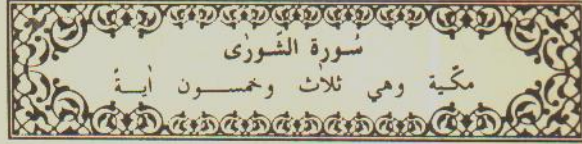 سُورة الشّورٰى
مكّية وهي ثلاث وخمسون اٰيةً